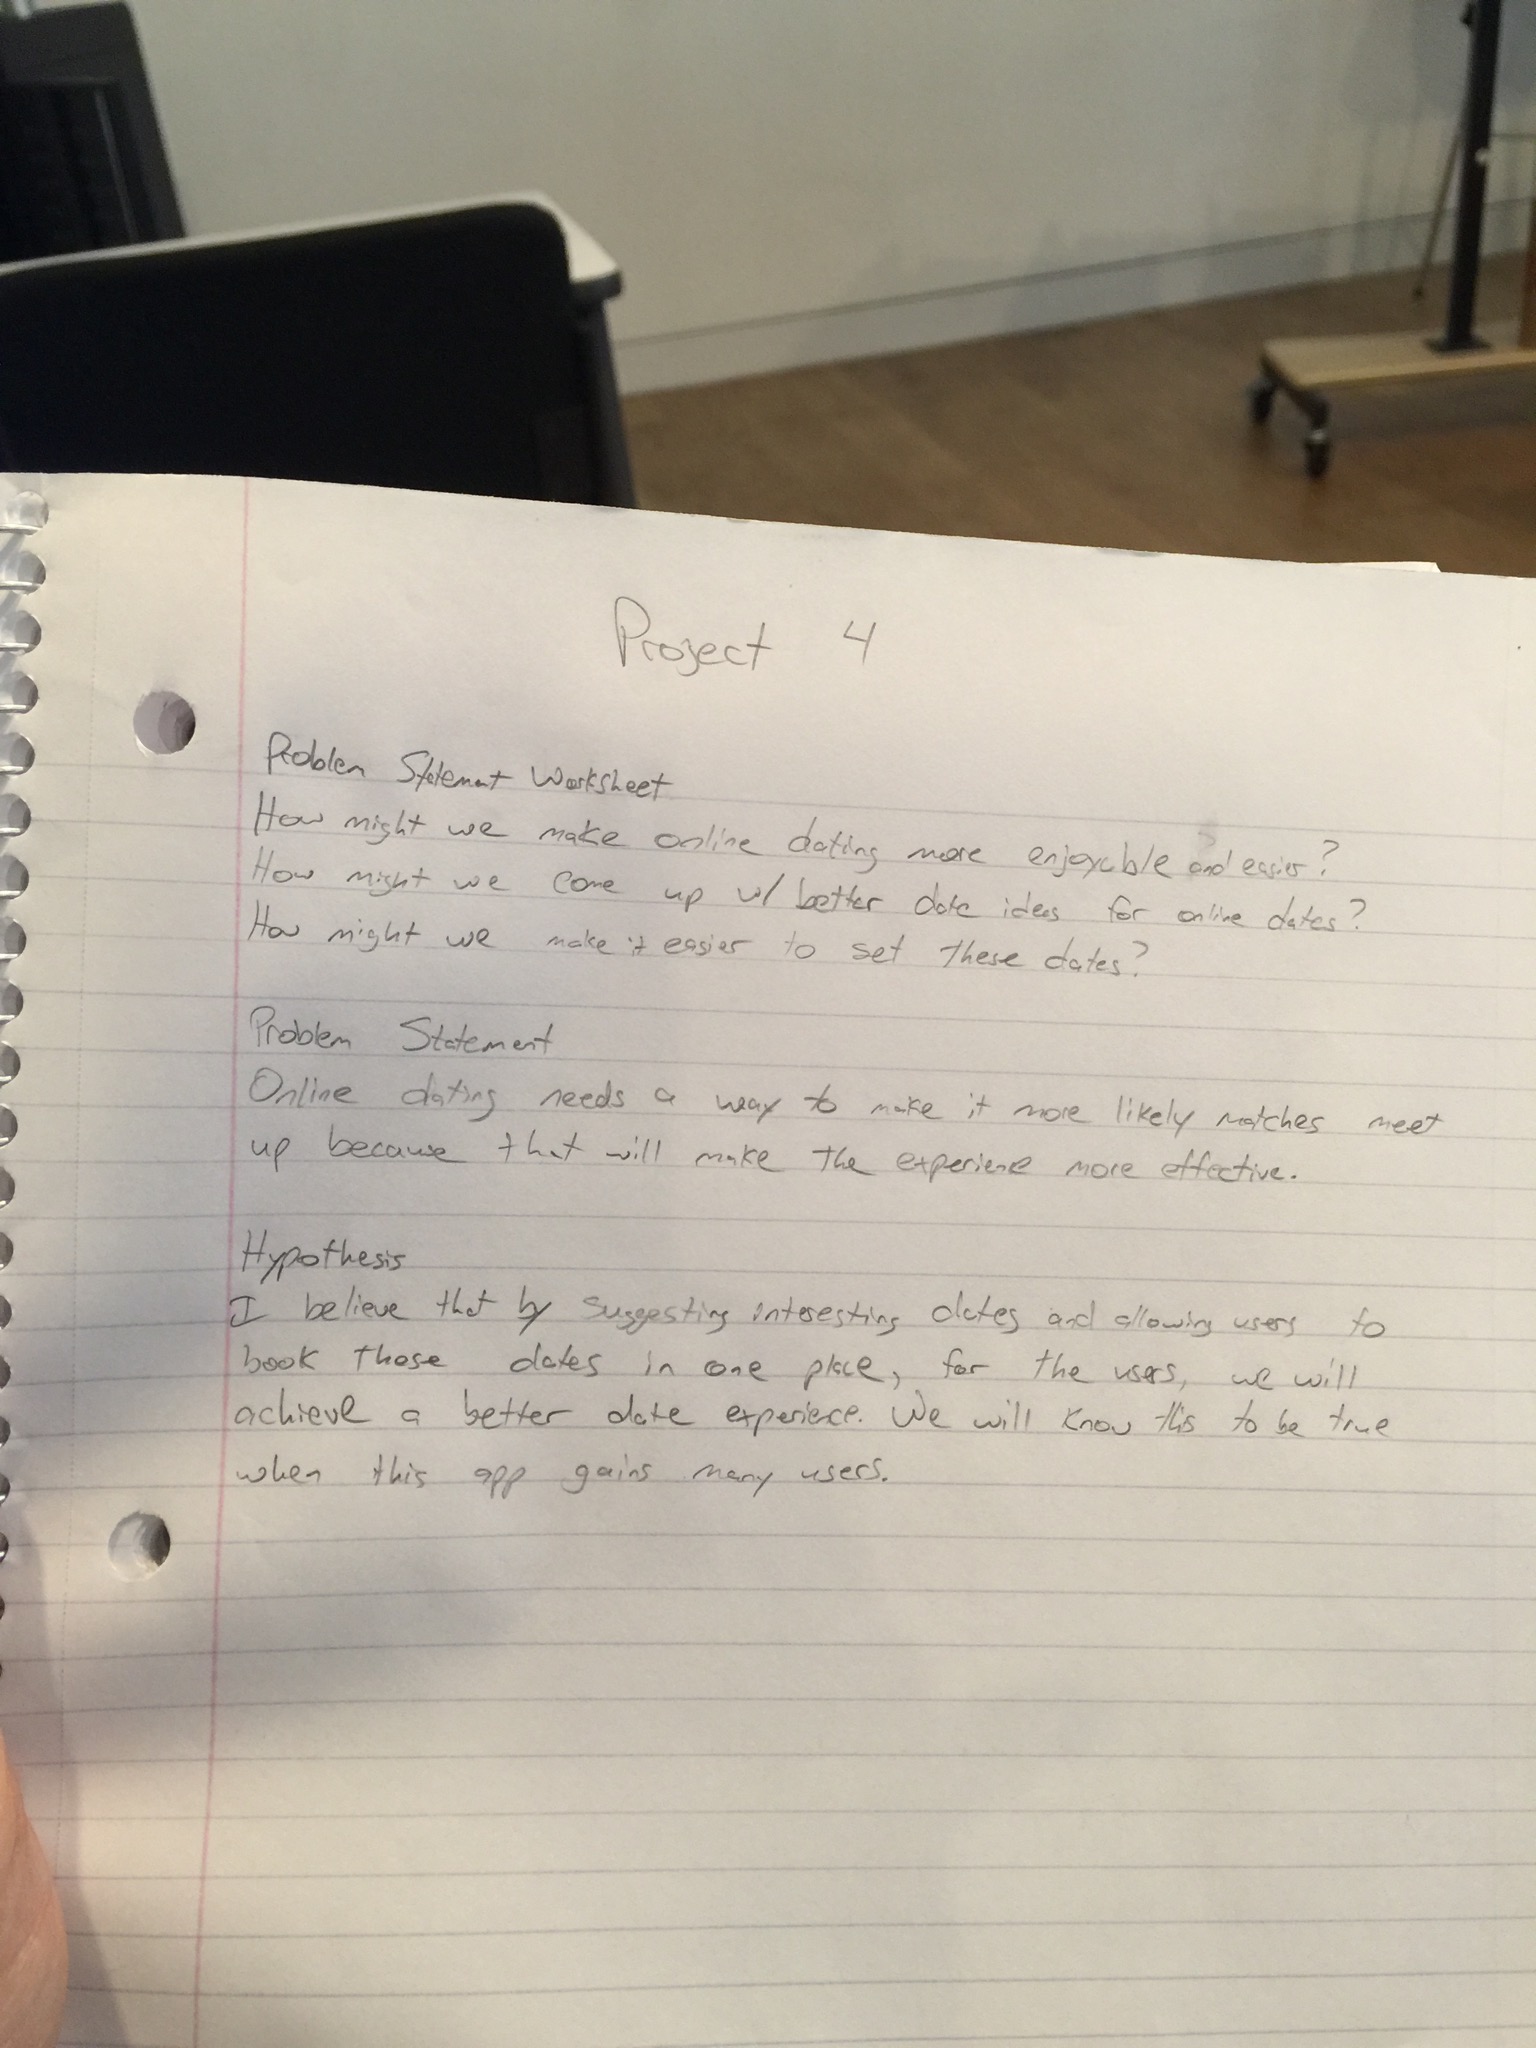 Project 4
Problem Statement Worksheet
How might we make online dating more enjoyable and easier?
How might we come up w/ better date ideas for online dates?
How might we make it easier to set these dates?
Problem Statement
Online dating needs a way to make it more likely matches meet
up because that will make the experience more effective.
Hypothesis
I believe that by suggesting interesting dates and allowing users to
book those dates in one place, for the users, we will
achieve a better date experience. We will know this to be true
when this app gains many users.